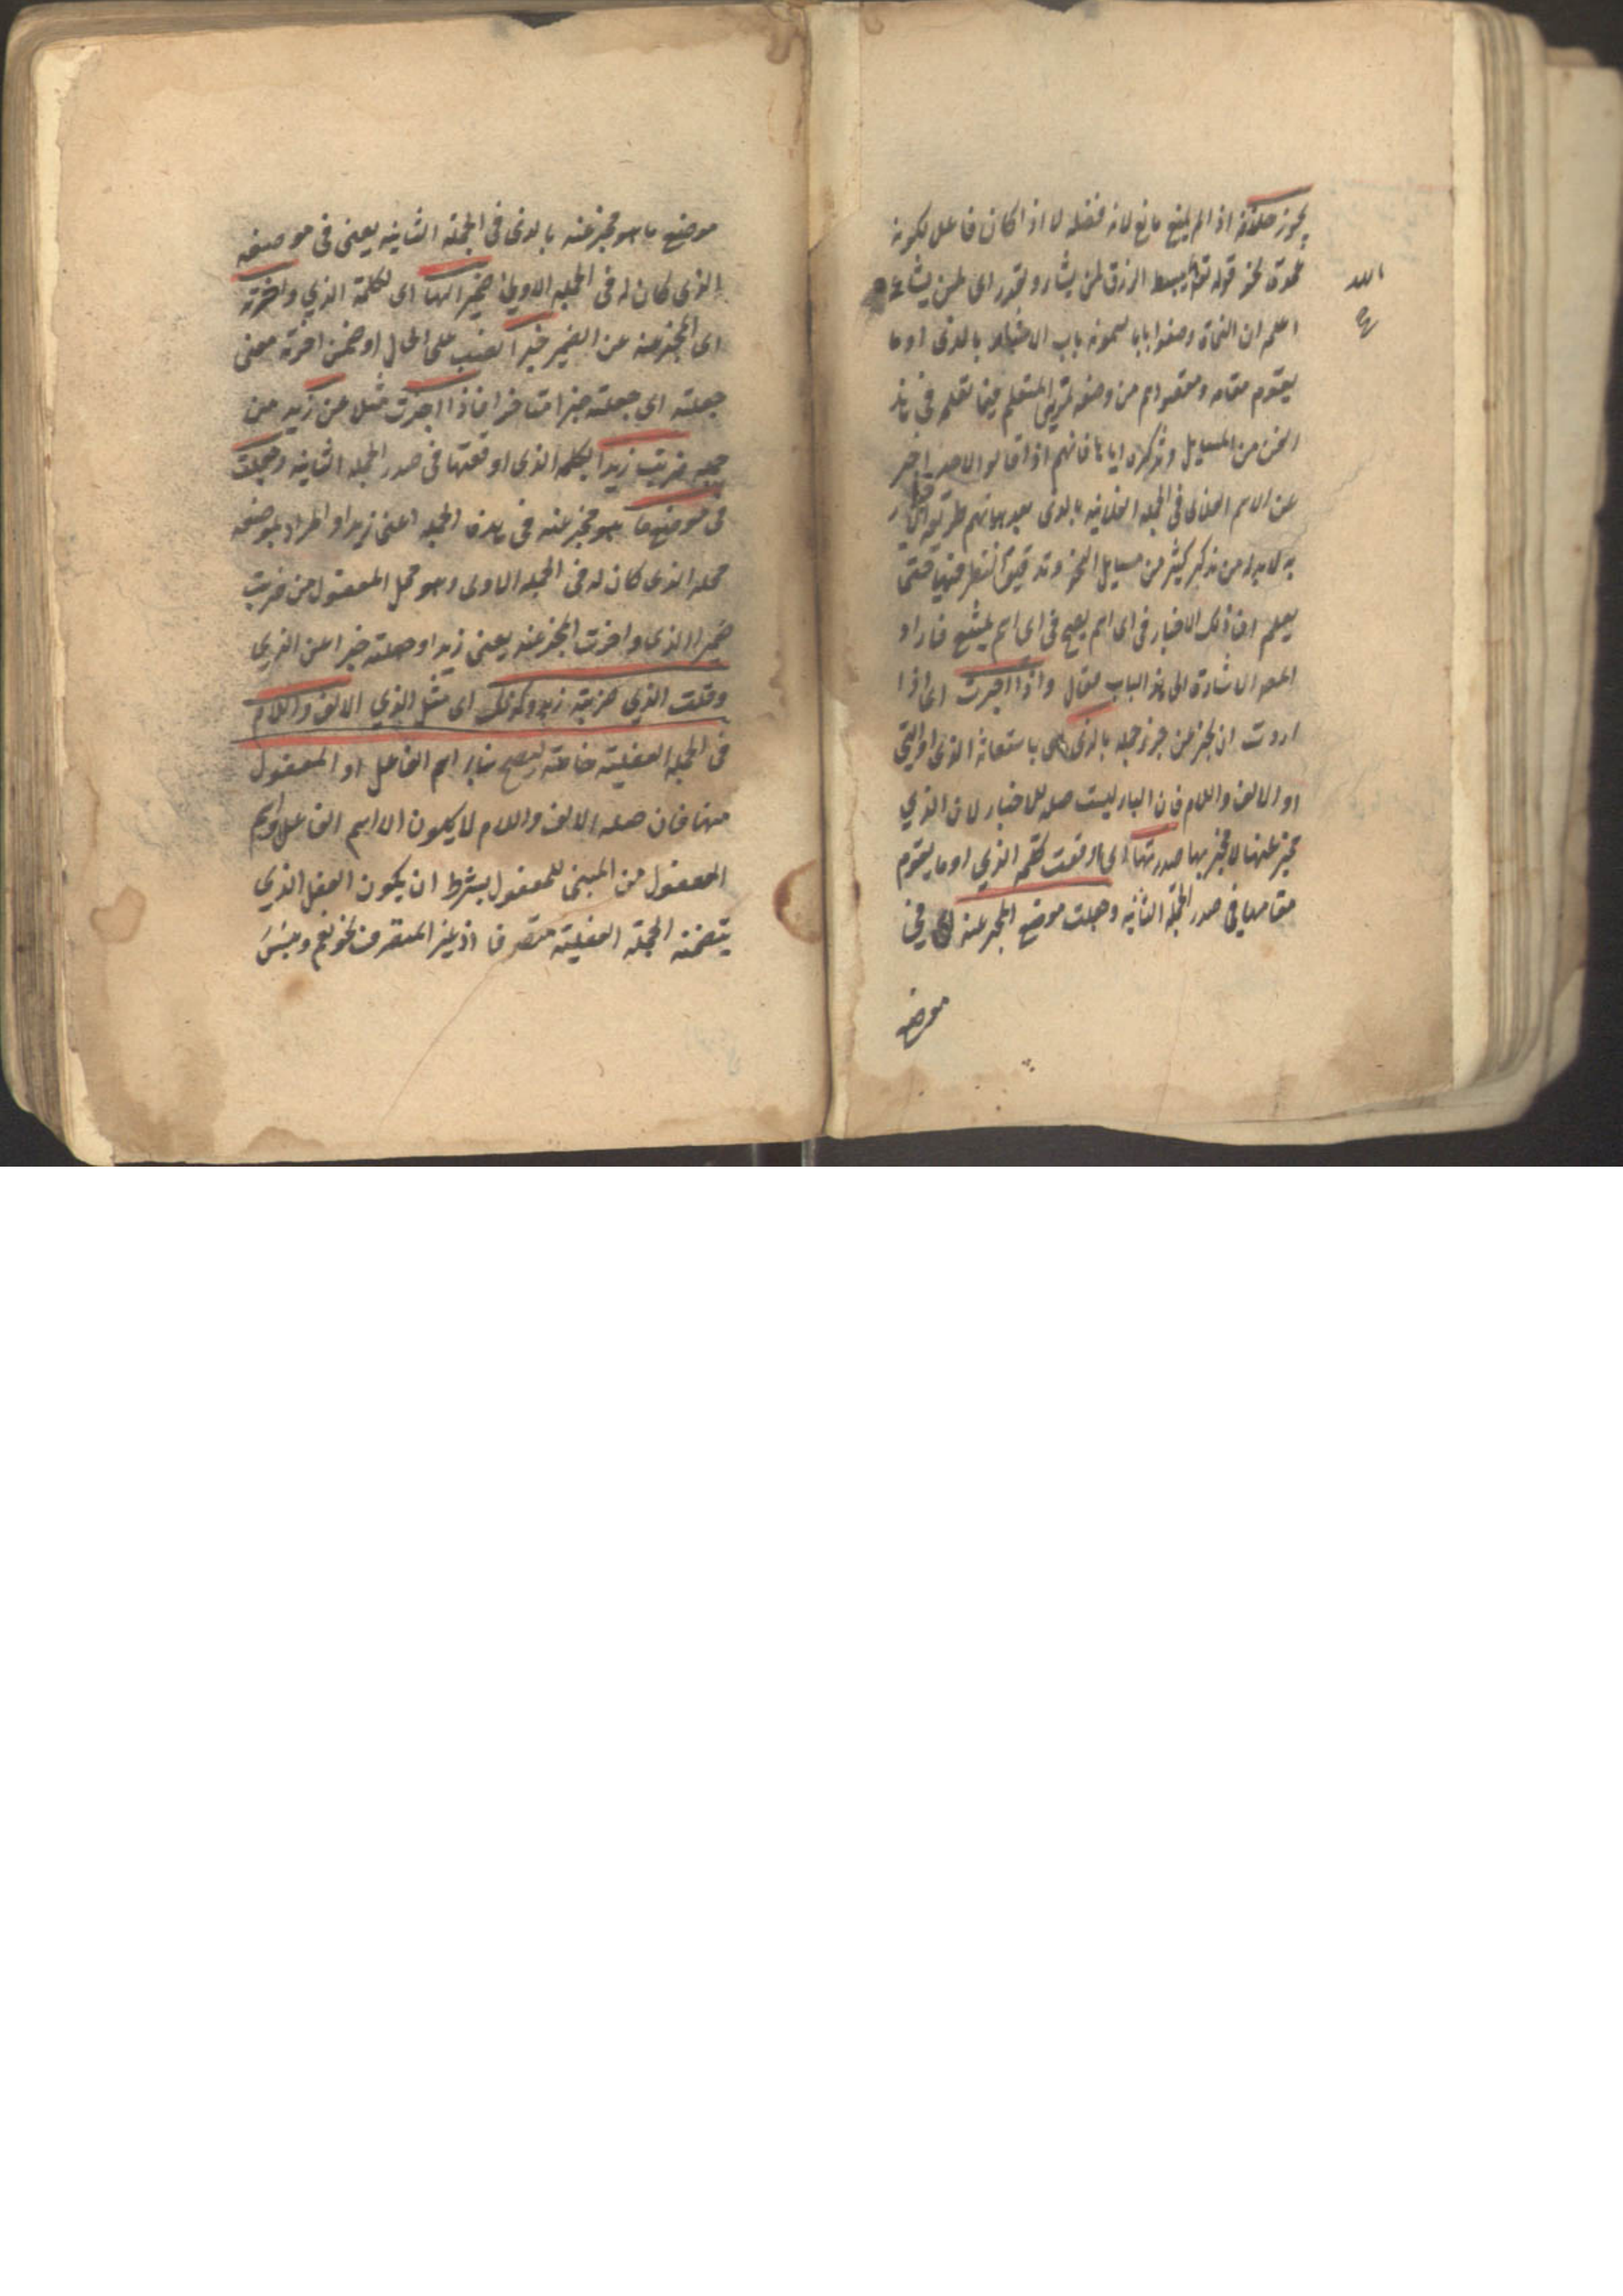 يجوز حذفه اذا لم يمنع مانع لانه فضلة لا اذا كان فاعلا لكونه
عمدة نحو قوله تع يبسط الرزق لمن يشاء ويقدر اى لمن يشاءه
الله
اعلم ان النحاة وضعوا بابا يسمونه باب الاخبار بالذى او ما
يقوم مقامه ومقصودهم من وضعه تمرين المتعلم فيما تعلمه فى هذا
الفن من المسايل وتذكره اياها فانهم اذا قالوا لاحد اخبر
عن الاسم الفلانى فى الجملة الفلانية بالذى بعد بيانهم طريق الاخبار
به لا بد من تذكر كثير من مسايل النحو وتدقيق النظر فيها حتى
يعلم ان ذلك الاخبار فى اى اسم يصح فى اى اسم يمتنع فاراد
المص الاشارة الى هذا الباب فقال واذا اخبرت اى اذا
اردت ان تخبر عن جزء جملة بالذى اى باستعانة الذى او التى
او الالف واللام فان الباء ليست صلة للاخبار لان الذي
مخبر عنها لا مخبر بها صدرتها اى اوقعت كلمة الذي او ما يقوم
مقامها فى صدر الجملة الثانية وجعلت موضع المخبر عنه اى فى
موضع
موضع ما هو مخبر عنه بالذى فى الجملة الثانية يعنى فى موضعه
الذى كان له فى الجملة الاولى ضميرا لها اى لكلمة الذي واخرته
اى المخبر عنه عن الضمير خبرا نصب على الحال او ضمن اخرته معنى
جعلته اى جعلته خبرا متاخرا فاذا اخبرت مثلا عن زيد من
جملة ضربت زيدا بكلمة الذى اوقعتها فى صدر الجملة الثانية وجعلت
فى موضع ما هو مخبر عنه فى هذه الجملة اعنى زيدا والمراد بموضعه
محله الذى كان له فى الجملة الاولى وهو محل المفعول من ضربت
ضميرا للذى واخرت المخبر عنه يعنى زيدا وجعلته خبرا عن الذي
وقلت الذي ضربته زيد وكذلك اى مثل الذي الالف واللام
فى الجملة الفعلية خاصة ليصح بناء اسم الفاعل او المفعول
منها فان صلة الالف واللام لا يكون الا اسم الفاعل واسم
المفعول من المبنى للمفعول بشرط ان يكون الفعل الذي
يتضمنه الجملة الفعلية متصرفا اذ غير المتصرف نحو نعم وبئس